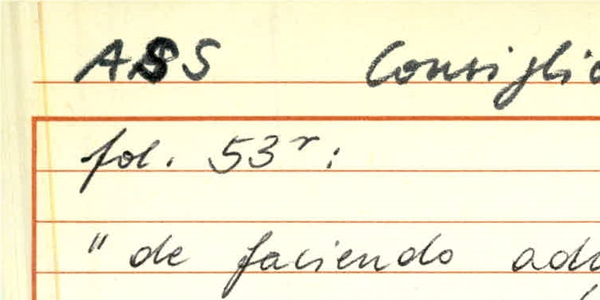 ASS Consiglio
fol. 53r:
"de faciendo